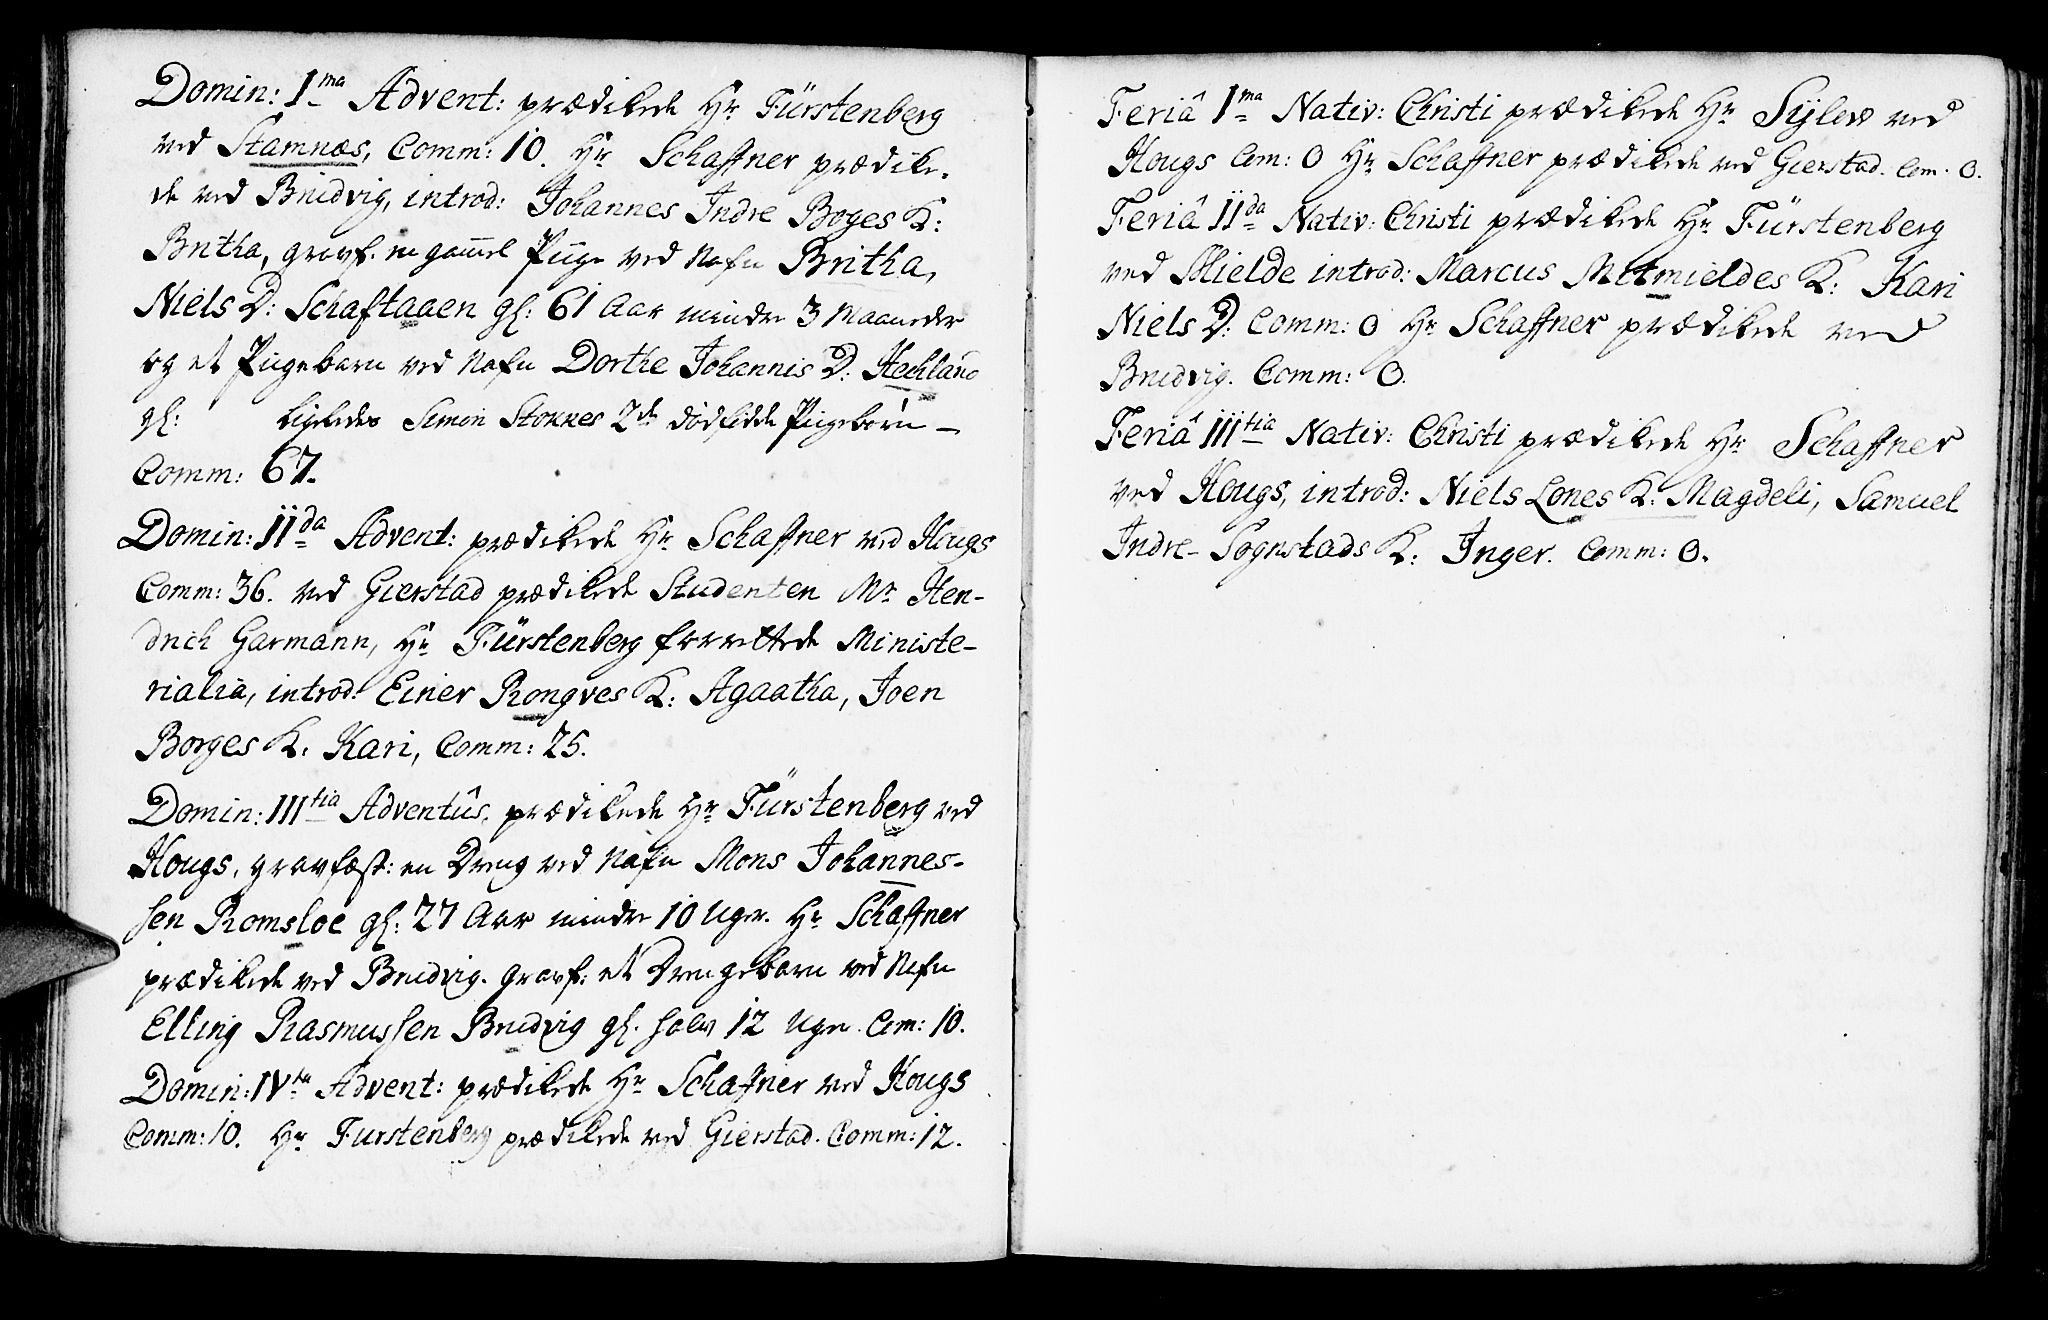 Domin: I ma Advent: prædikede Hr Fürstenberg
ved Stamnæs, Comm: 10. Hr Schaffner prædike-
de ved Bruvig, introd: Johannes Indre Boges K:
Britha, gravf. en gamel Piige ved Nafn Britha,
Niels D: Schaftaaen gl: 61 Aar mindre 3 Maaneder
og et Pigebarn ved Nafn Dorthe Johannis D: Hechland
gl: ligeledes Simon Stoknes 2de dödfødde Pigebörn –
Comm: 67.
Domin: II da Advent: prædikede Hr Schaffner ved Hougs
Comm: 36. ved Gierstad prædikede Studenten Mr Hen-
drich Garmann, Hr Fürstenberg forrettede Ministe-
rialia, introd: Einer Rongves K: Agaatha, Joen
Borges K: Kari, Comm: 25.
Domin: III tia Adventûs, prædikede Hr Fürstenberg ved
Hougs, gravfæst: en Dreng ved Nafn Mons Johannes-
sen Romsloe gl: 27 Aar mindre 10 Uger. Hr Schaffner
prædikede ved Bruvig. gravf: et Drengebarn ved Nafn
Elling Rasmussen Bruvig gl. halv 12 Uger. Com: 10.
Domin: IV ta Advent: prædikede Hr Schafner ved Hougs
Comm: 10. Hr Furstenberg prædikede ved Gierstad. Comm: 12.
Feriâ I ma Nativ: Christi prædikede Hr Sylow ved
Hougs Com: 0 Hr Schaffner prædikede ved Gierstad. Com. 0.
Feriâ II da Nativ: Christi prædikede Hr Fürstenberg
ved Mielde introd: Marcus Mitmieldes K: Kari
Niels D: Comm: 0 Hr Schaffner prædikede ved
Bruvig. Comm: 0.
Feriâ III tia Nativ: Christi prædikede Hr Schaffner
ved Hougs, introd: Niels Lones K: Magdeli, Samuel
Indre-Sognstads K: Inger. Comm: 0.